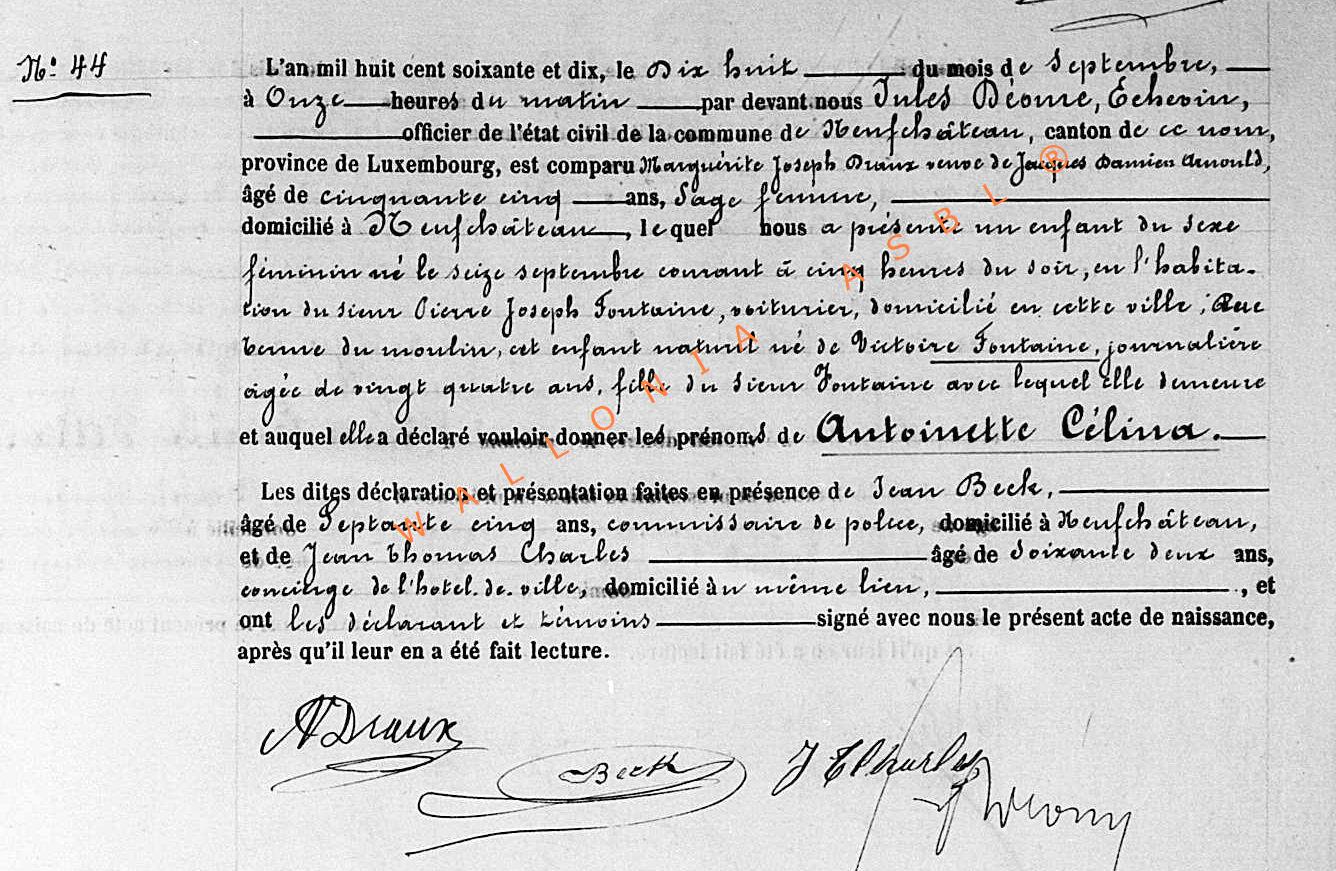 N° 44
L'an mil huit cent soixante et dix, le Dix huit du mois de Septembre,
à Onze heures du matin par devant nous Jules Déome, Échevin,
officier de l'état civil de la commune de Neufchâteau, canton de ce nom,
province de Luxembourg, est comparu Marguérite Joseph Draux veuve de Jacques Damien Arnould,
âgé de cinquante cinq ans, Sage femme,
domicilié à Neufchâteau, lequel nous a présenté un enfant du sexe
féminin né le seize septembre courant à cinq heures du soir, en l'habita-
tion du sieur Pierre Joseph Fontaine, voiturier, domicilié en cette ville, Rue
du moulin, cet enfant naturel né de Victoire Fontaine, journalière
agée de vingt quatre ans, fille du Sieur Fontaine avec lequel elle demeure
et auquel elle a déclaré vouloir donner les prénoms de Antoinette Célina.
Les dites déclaration et présentation faites en présence de Jean Beck,
âgé de Septante cinq ans, commissaire de police, domicilié à Neufchâteau,
et de Jean Thomas Charles âgé de Soixante deux ans,
concierge de l'hotel de ville, domicilié à u même lieu, et
ont les déclarant et témoins signé avec nous le présent acte de naissance,
après qu'il leur en a été fait lecture.
Draux
Beck
J T Charles
WALLONIA ASBL ®